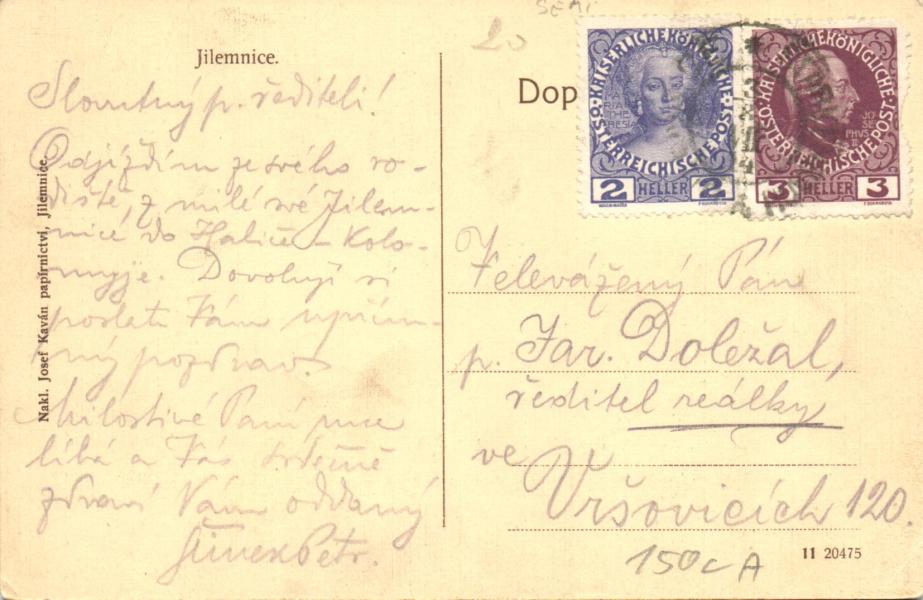 Jilemnice.
Slovutný p. řediteli!
Odjíždím ze svého ro-
diště, z milé své Jilem-
nice do Halič - Kolo-
myje. Dovoluji si
poslati Vám upřím-
ný pozdrav.
Milostivé Paní ruce
líbá a Vás srdečně
zdraví Vám oddaný
Petr.
Nakl. Josef Kaván papírnictví, Jilemnice.
20
Dop
KAISERLICHEKÖNIGLICHE
ÖSTERREICHISCHEPOST
MARIA THERESIA
2 HELLER 2
KAISERLICHEKÖNIGLICHE
ÖSTERREICHISCHEPOST
JOSEPHVS
3 HELLER 3
Velevážený Pán
p. Jar. Doležal,
ředitel reálky
ve
Vršovicích 120.
11 20475
150